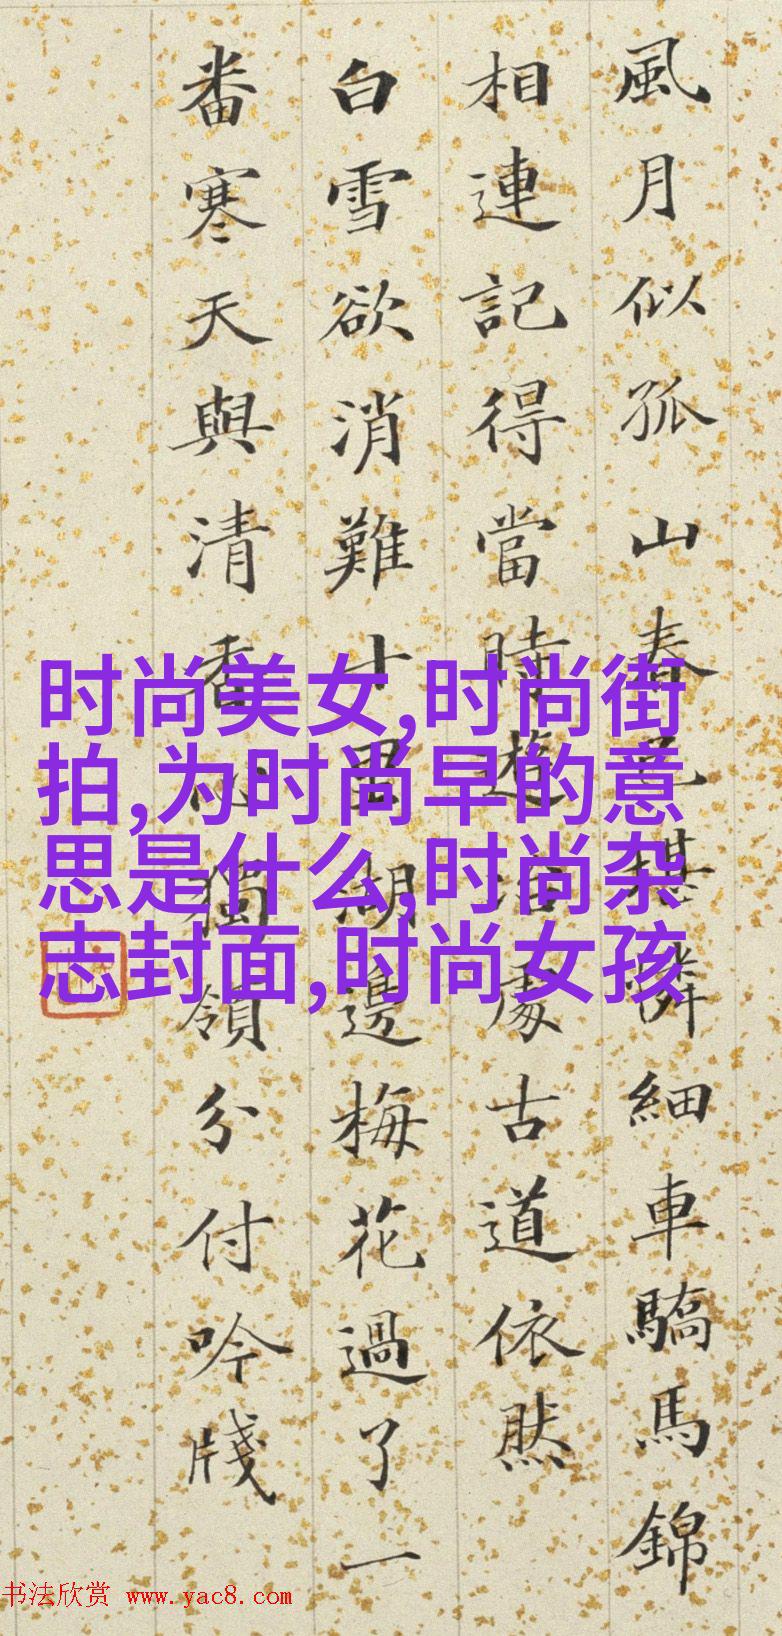 風月似孤山春色堪憐細車驕馬錦
相連記得當時遊冶處古道依然
白雪欲消難十里湖邊梅花過了一
番寒天與清香心獨領分付吟牋
时尚美女,时尚街
拍,为时尚早的意
思是什么,时尚杂
志封面,时尚女孩
书法欣赏 www.yac8.com